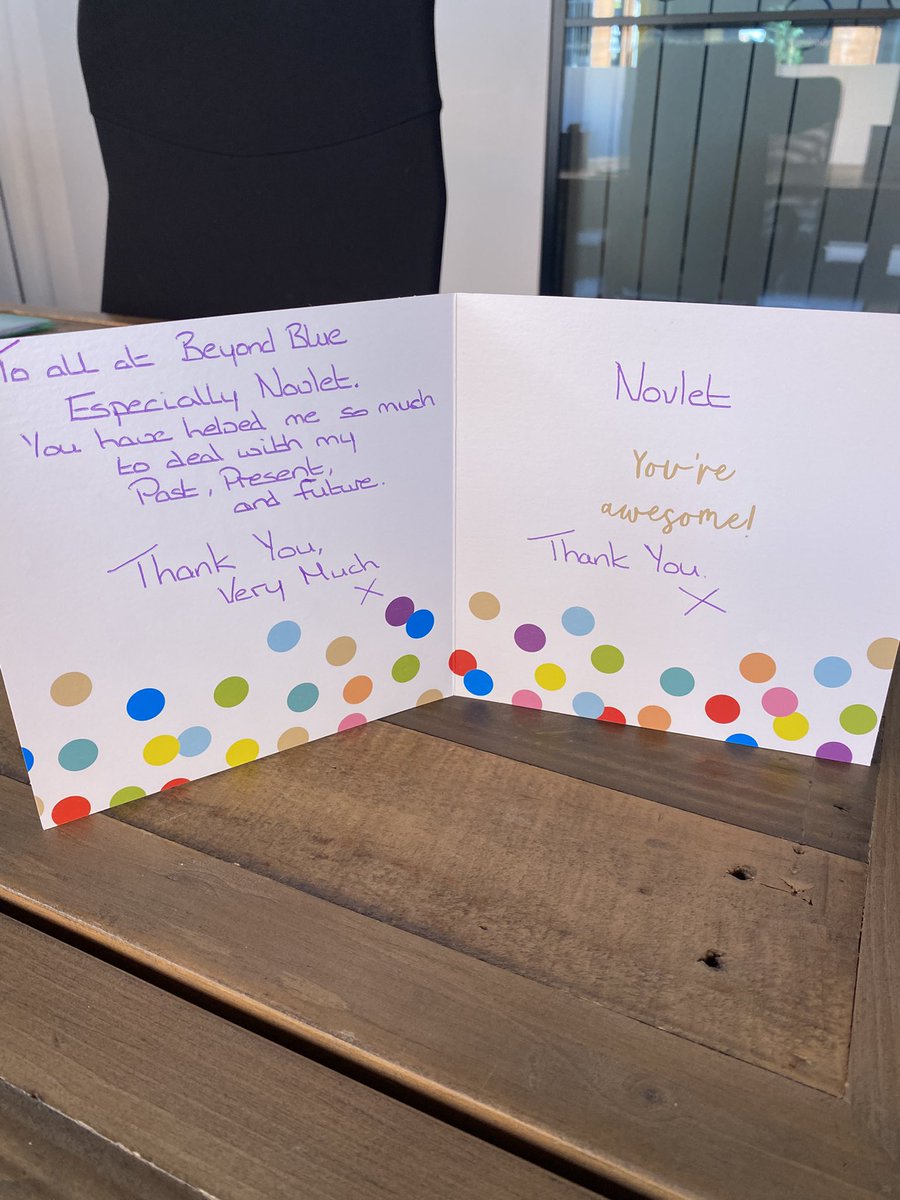 To all at Beyond Blue
Especially Novlet.
You have helped me so much
to deal with my
Past, Present,
and future.
Thank You,
Very Much
X
Novlet
You're
awesome!
Thank You.
X